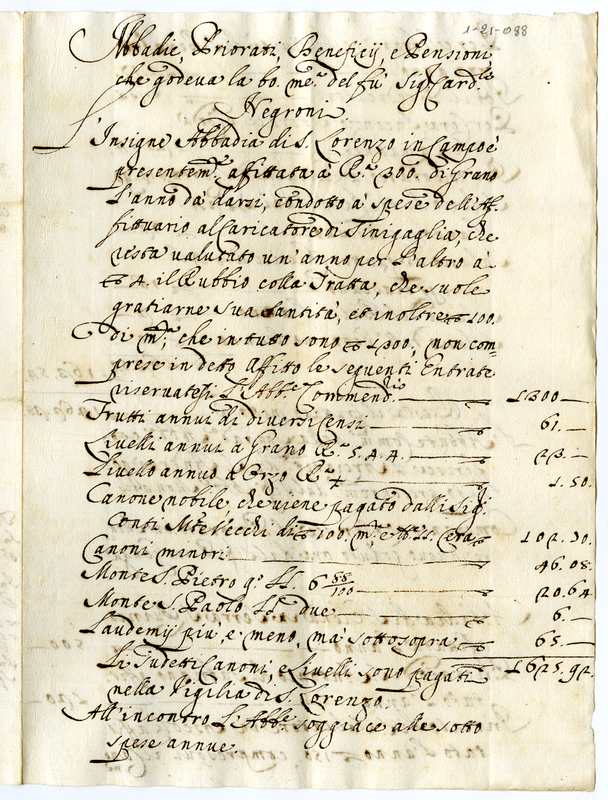 1-21-088
Abbadie, Priorati, Beneficij, e Pensioni
che godeva la bo: me: del fù Sig.r Card.le
Negroni.
L'Insigne Abbadia di S. Lorenzo in Campo è
presentem.te affittata à R.a 300. di Grano
l'anno da darsi, condotto à spese dell'Af-
fittuario al Caricatore di Sinigaglia, che
resta valutato un'anno per l'altro à
∇ 4. il Rubbio colla Tratta, che suole
gratiarne Sua Santità, et inoltre ∇ 100.
di m.ta, che in tutto sono ∇ 1300, non com-
prese in detto Affitto le seguenti Entrate
riservatesi l'Abb.e Commend.rio 1300 —
Frutti annui di diversi Censi 61. —
Livelli annui à Grano R.a 5. 4. 4. 23. —
Livello annuo d'Orzo R.a 1. 50.
Canone nobile, che viene pagato dalli Sig.ri
Conti MteVecchi di ∇ 100. m.ta, e lb. cera 102. 30.
Canoni minori 46. 08.
Monte S. Pietro q.o LL. 6 88/100 20. 64
Monte S. Paolo LL. due 6. —
Laudemij più, e meno, mà sottosopra 65. —
Li sudetti Canoni, e Livelli sono pagati 1625. 92.
nella Vigilia di S. Lorenzo.
All'incontro l'Abb.e soggiace alle sotto
spese annue.